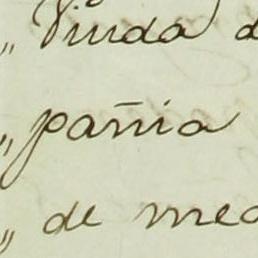 „ Viuda d
„ pañia
„ de med